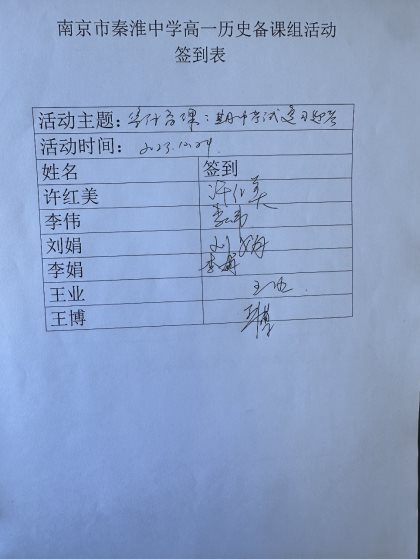 南京市秦淮中学高一历史备课组活动
签到表
活动主题：集体备课：期中考试复习迎考
活动时间：2023.10.24
姓名 签到
许红美 许红美
李伟 李伟
刘娟 刘娟
李娟 李娟
王业 王业
王博 王博